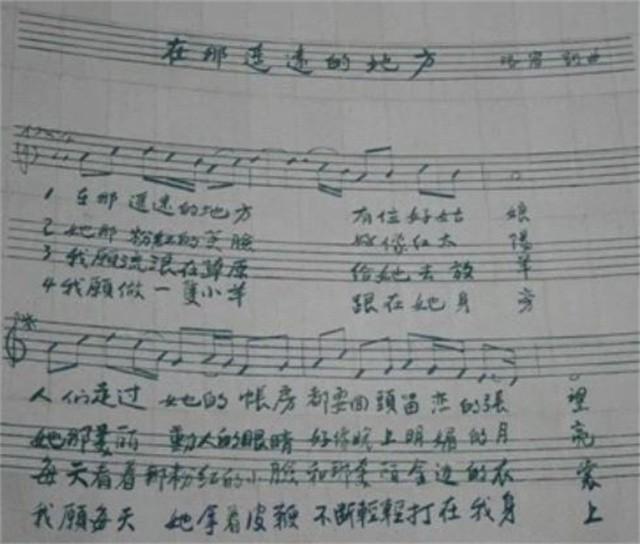 在那遥遠的地方
1 在那遥遠的地方 有位好姑娘
2 她那粉红的笑臉 好像红太陽
3 我願流浪在草原 給她去放羊
4 我願做一隻小羊 跟在她身旁
人们走过 她的帳房 都要回頭留恋的張望
她那美丽 動人的眼睛 好像晚上明媚的月亮
每天看着那粉红的小臉和那美丽金边的衣裳
我願每天 她拿着皮鞭 不斷輕輕打在我身上